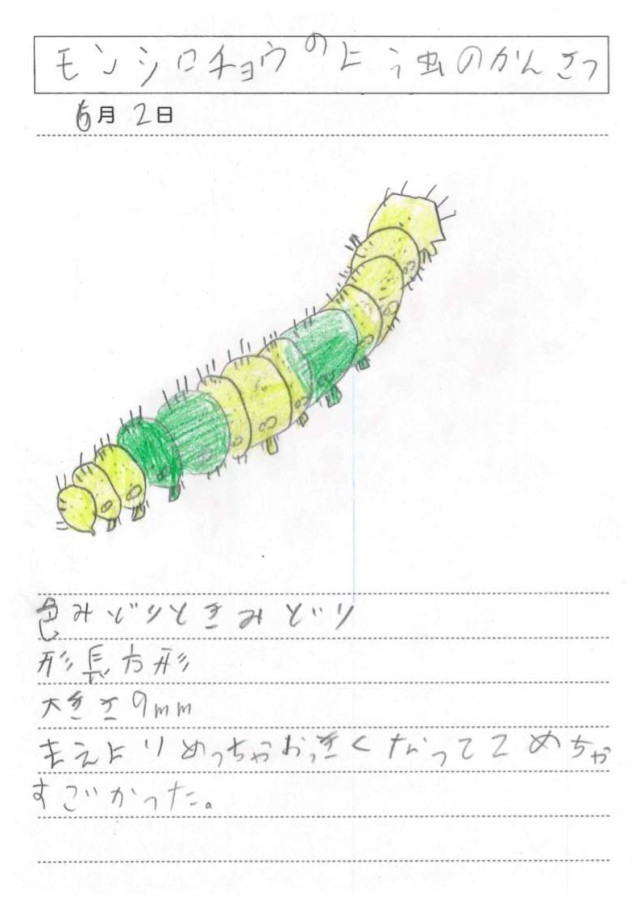 モンシロチョウのよう虫のかんさつ
6月2日
色みどりときみどり
形長方形
大きさ9mm
まえよりめっちゃおっきくなっててめちゃ
すごかった。